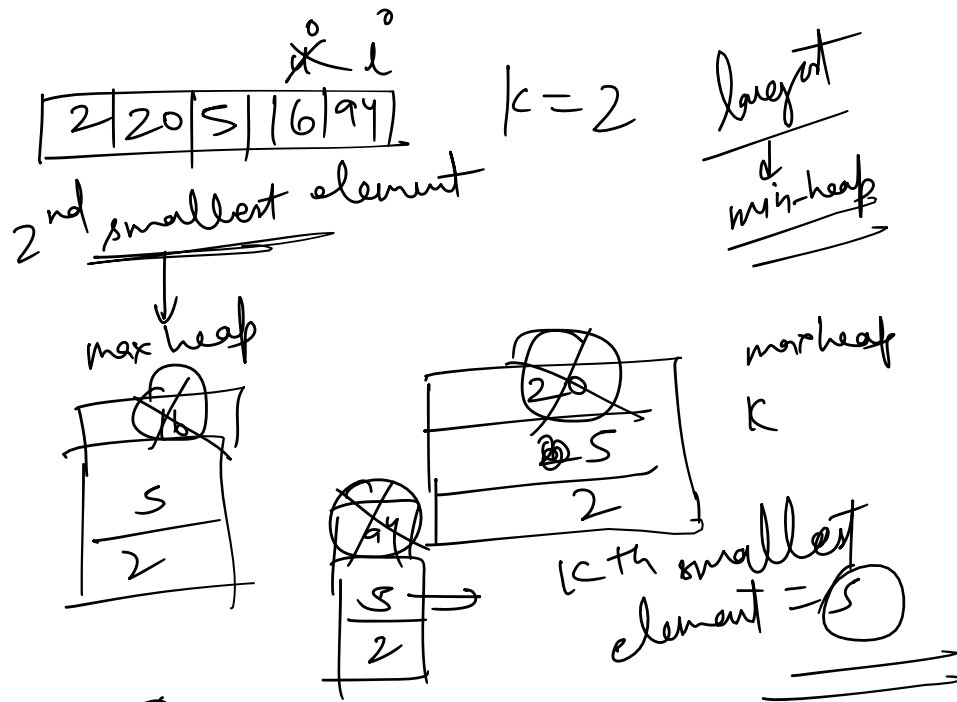 i i
2 20 5 16 94
K = 2
largest
min-heap
2nd smallest element
max heap
16
5
2
20
5
2
maxheap
K
94
5
2
Kth smallest
element = 5